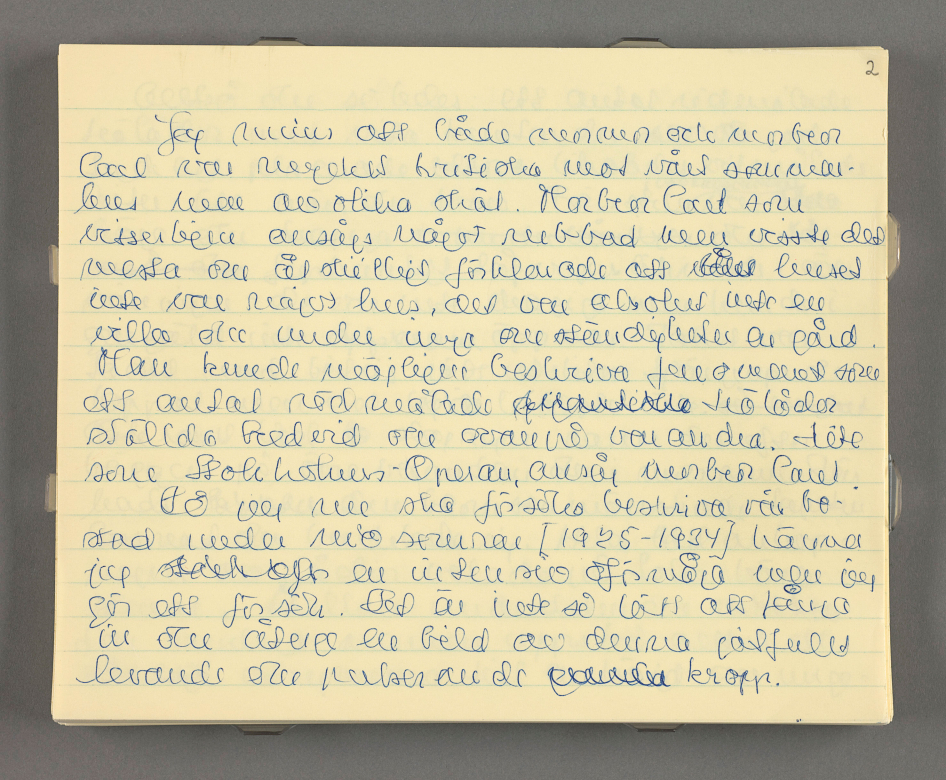 2
Jag minns att både mormor och morbror
Carl var mycket kritiska mot vårt sommar-
hus men av olika skäl. Morbror Carl som
visserligen ansågs något rubbad men visste det
mesta om åtskilligt förklarade att huset
inte var något hus, det var absolut inte en
villa och under inga omständigheter en gård.
Man kunde möjligen beskriva fenomenet som
ett antal rödmålade trälådor
ställda bredvid och ovanpå varandra. Lite
som Stockholms-Operan, ansåg morbror Carl.
Då jag nu ska försöka beskriva vår bo-
stad under nio somrar [1925-1934] känna
jag en intensiv oförmåga men jag
gör ett försök. Det är inte så lätt att fånga
in och återge en bild av denna gåtfullt
levande och pulserande kropp.